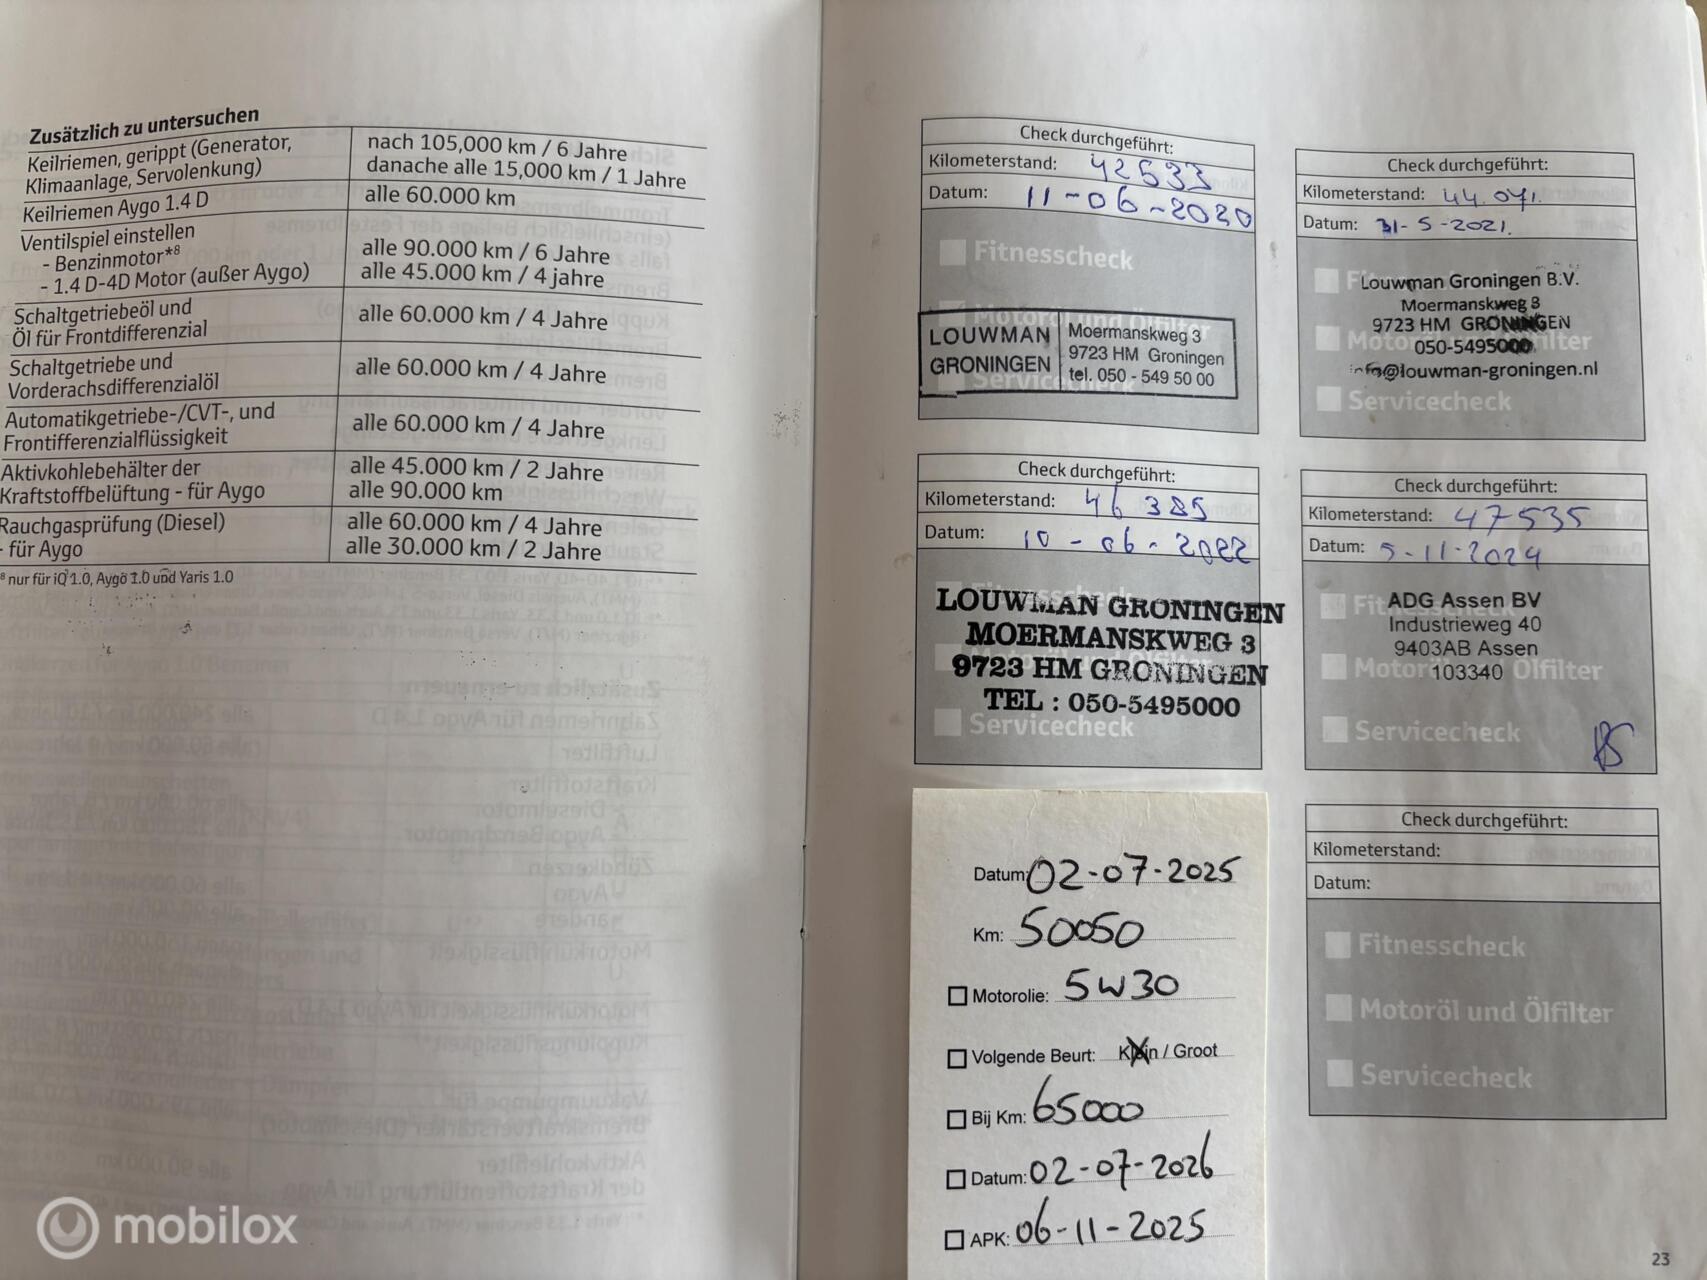 Zusätzlich zu untersuchen
Keilriemen, gerippt (Generator,
Klimaanlage, Servolenkung)
nach 105,000 km / 6 Jahre
danache alle 15,000 km / 1 Jahre
Keilriemen Aygo 1.4 D
alle 60.000 km
Ventilspiel einstellen
- Benzinmotor*8
- 1.4 D-4D Motor (außer Aygo)
alle 90.000 km / 6 Jahre
alle 45.000 km / 4 jahre
Schaltgetriebeöl und
Öl für Frontdifferenzial
alle 60.000 km / 4 Jahre
Schaltgetriebe und
Vorderachsdifferenzialöl
alle 60.000 km / 4 Jahre
Automatikgetriebe-/CVT-, und
Frontifferenzialflüssigkeit
alle 60.000 km / 4 Jahre
Aktivkohlebehälter der
Kraftstoffbelüftung - für Aygo
alle 45.000 km / 2 Jahre
alle 90.000 km
Rauchgasprüfung (Diesel)
- für Aygo
alle 60.000 km / 4 Jahre
alle 30.000 km / 2 Jahre
8 nur für iQ 1.0, Aygo 1.0 und Yaris 1.0
Check durchgeführt:
Kilometerstand: 42533
Datum: 11-06-2020
Fitnesscheck
Motoröl und Ölfilter
Servicecheck
LOUWMAN
GRONINGEN
Moermanskweg 3
9723 HM Groningen
tel. 050 - 549 50 00
Check durchgeführt:
Kilometerstand: 44.071.
Datum: 31-5-2021.
Louwman Groningen B.V.
Moermanskweg 3
9723 HM GRONINGEN
050-5495000
info@louwman-groningen.nl
Motoröl und Ölfilter
Servicecheck
Check durchgeführt:
Kilometerstand: 46385
Datum: 10-06-2022
Fitnesscheck
LOUWMAN GRONINGEN
MOERMANSKWEG 3
9723 HM GRONINGEN
TEL : 050-5495000
Servicecheck
Check durchgeführt:
Kilometerstand: 47535
Datum: 5-11-2024
Fitnesscheck
ADG Assen BV
Industrieweg 40
9403AB Assen
103340
Motoröl und Ölfilter
Servicecheck
Check durchgeführt:
Kilometerstand:
Datum:
Fitnesscheck
Motoröl und Ölfilter
Servicecheck
Datum: 02-07-2025
Km: 50050
Motorolie: 5W30
Volgende Beurt: Klein / Groot
Bij Km: 65000
Datum: 02-07-2026
APK: 06-11-2025
23
mobilox